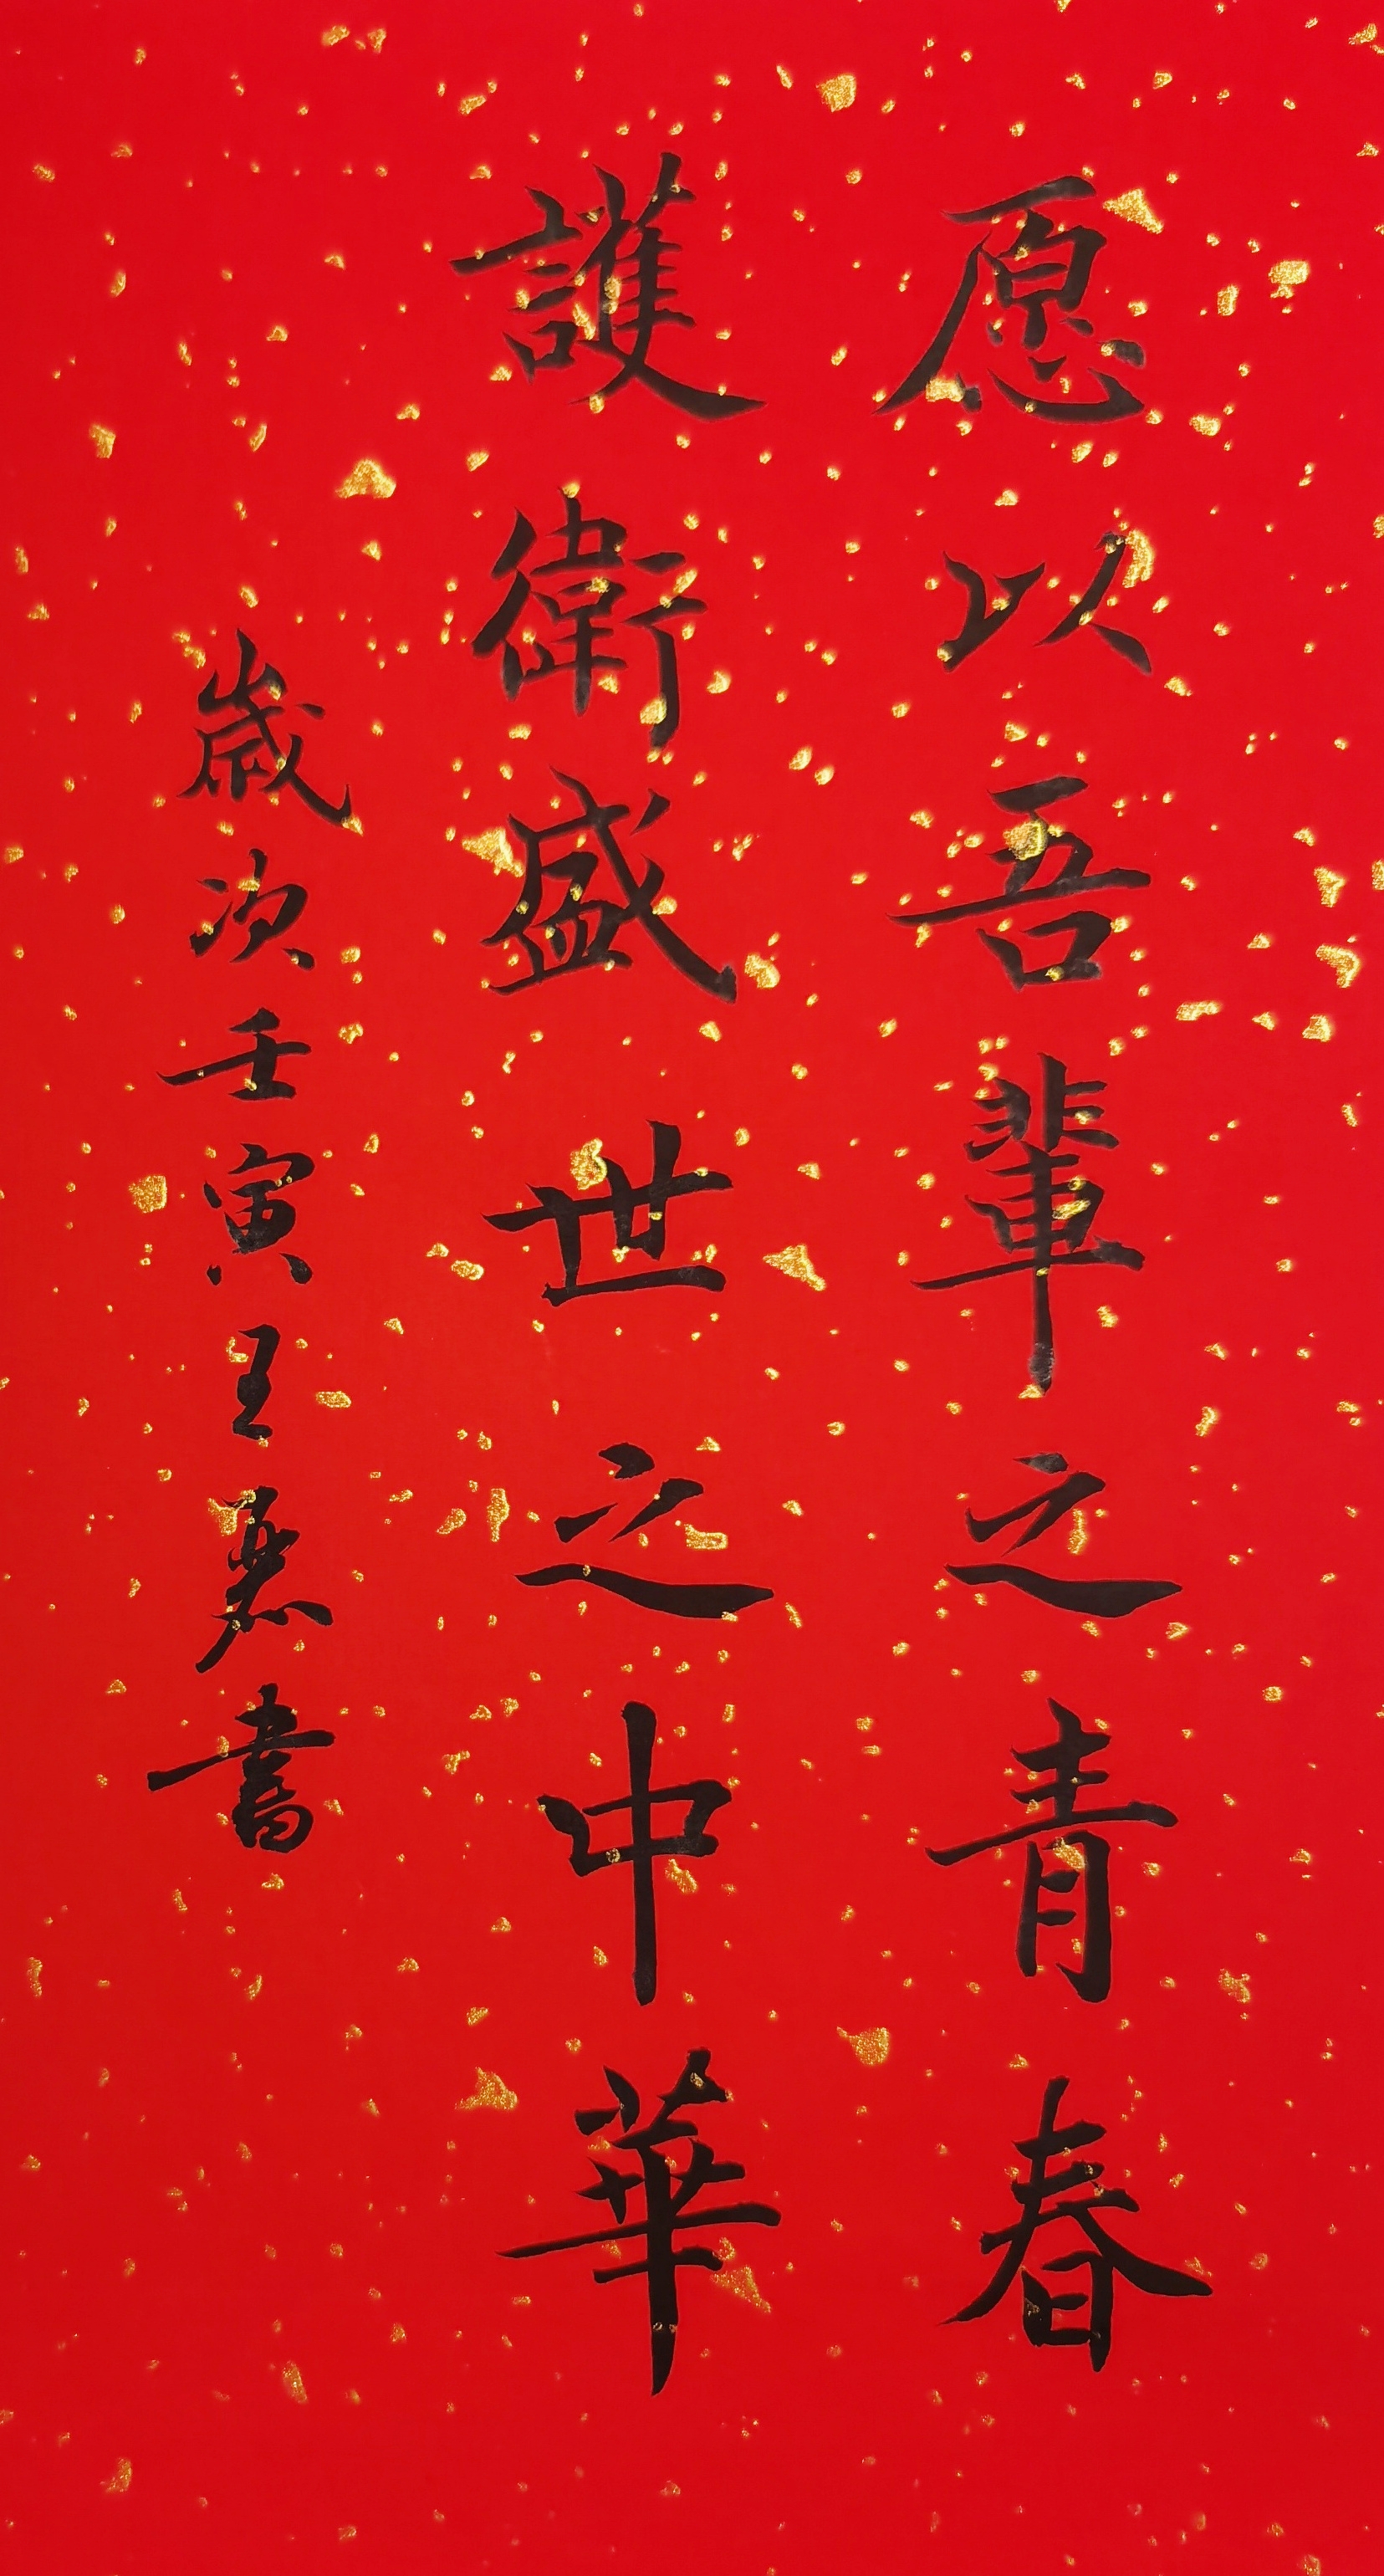 愿以吾輩之青春
護衛盛世之中華
歲次壬寅王書